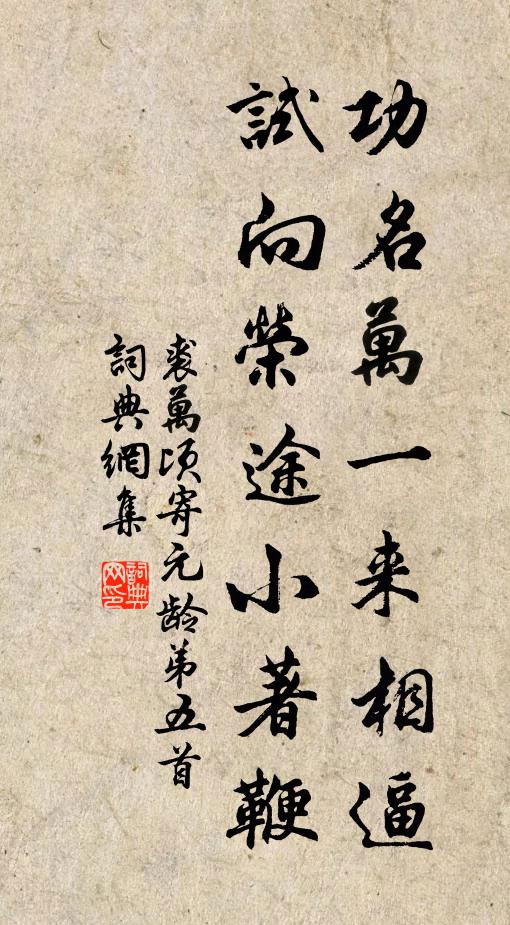 功名萬一来相逼
試向榮途小著鞭
裘萬頃寄元龄第五首
詞典網集
詞典网印